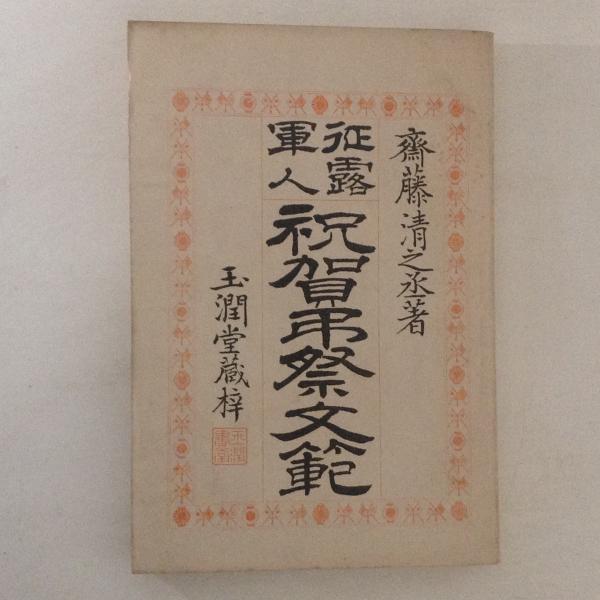 齋藤清之丞著
征露
軍人
祝賀弔祭文範
玉潤堂蔵梓